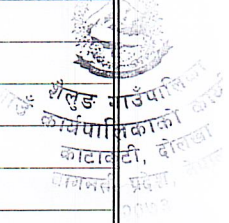 शैलुङ गाउँपालिका
गाउँ कार्यपालिकाको कार्या
काटाकुटी, दोलखा
बागमती प्रदेश, नेपाल
२०७३